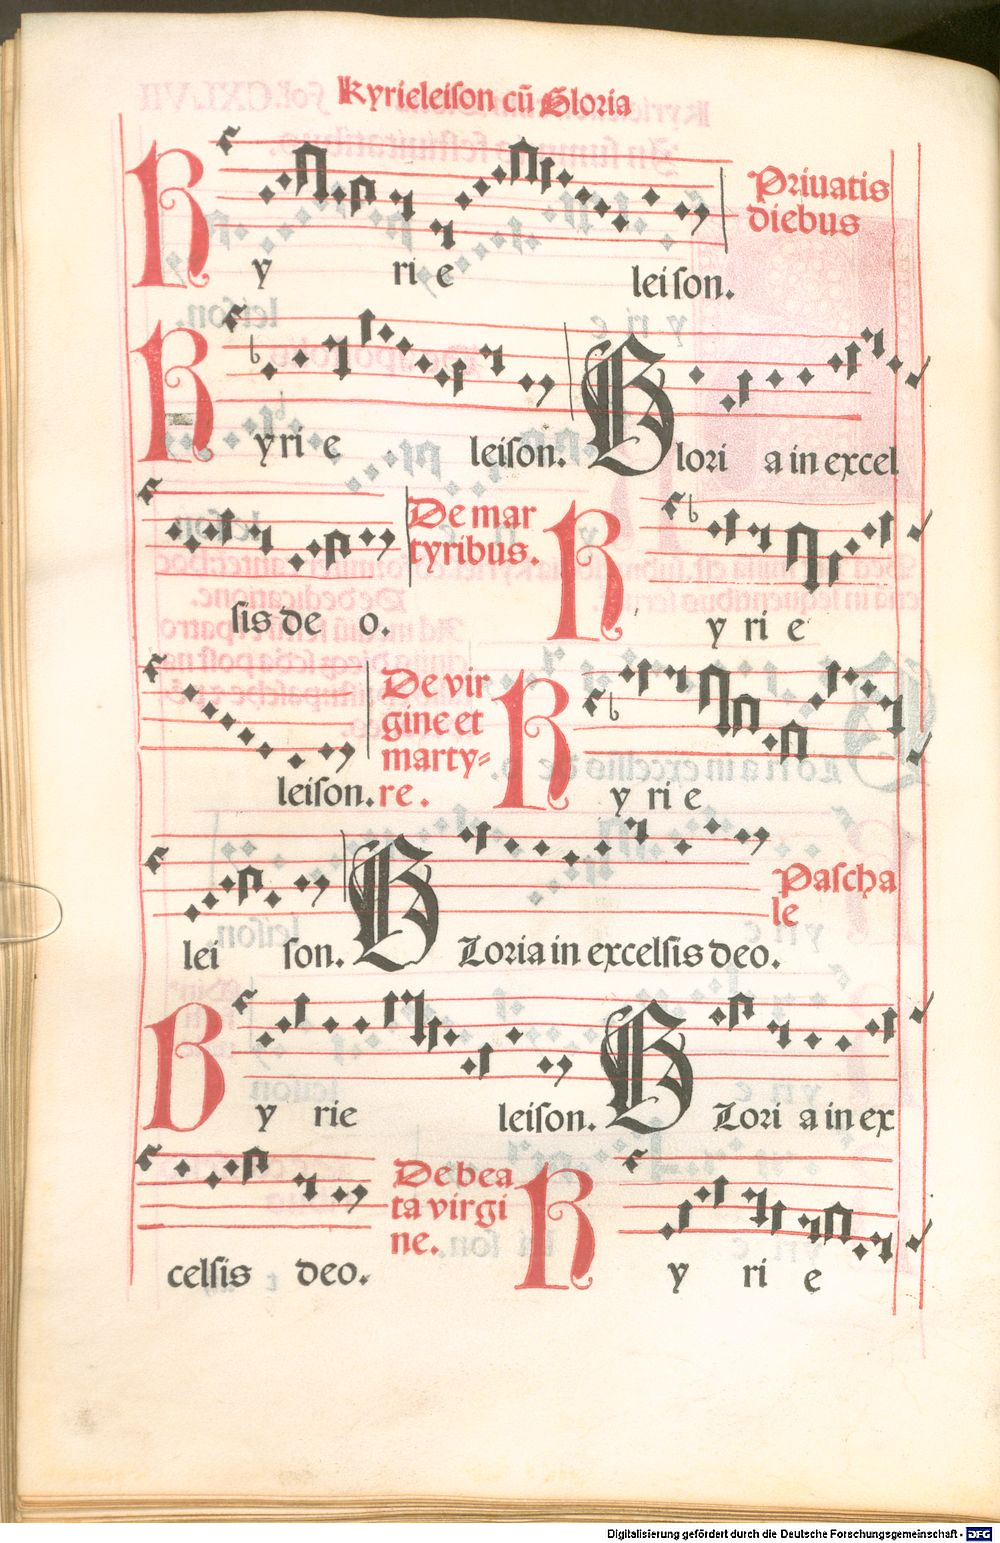 Kyrieleiſon cū Gloria
Priuatis
diebus
Ky rie leiſon.
Kyri e leiſon. Glori a in excel
ſis de o.
De mar
tyribus.
Ky ri e
leiſon.
De vir
gine et
marty⸗
re.
Ky ri e
lei ſon. Gloria in excelſis deo.
Paſcha
le
Ky rie leiſon. Glori a in ex
celſis deo.
De bea
ta virgi
ne.
Ky ri e
Digitalisierung gefördert durch die Deutsche Forschungsgemeinschaft - DFG